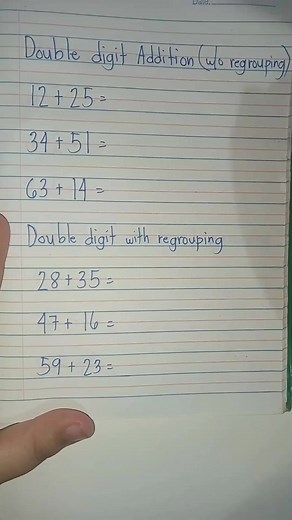 Date
Double digit Addition (w/o regrouping)
12 + 25 =
34 + 51 =
63 + 14 =
Double digit with regrouping
28 + 35 =
47 + 16 =
59 + 23 =